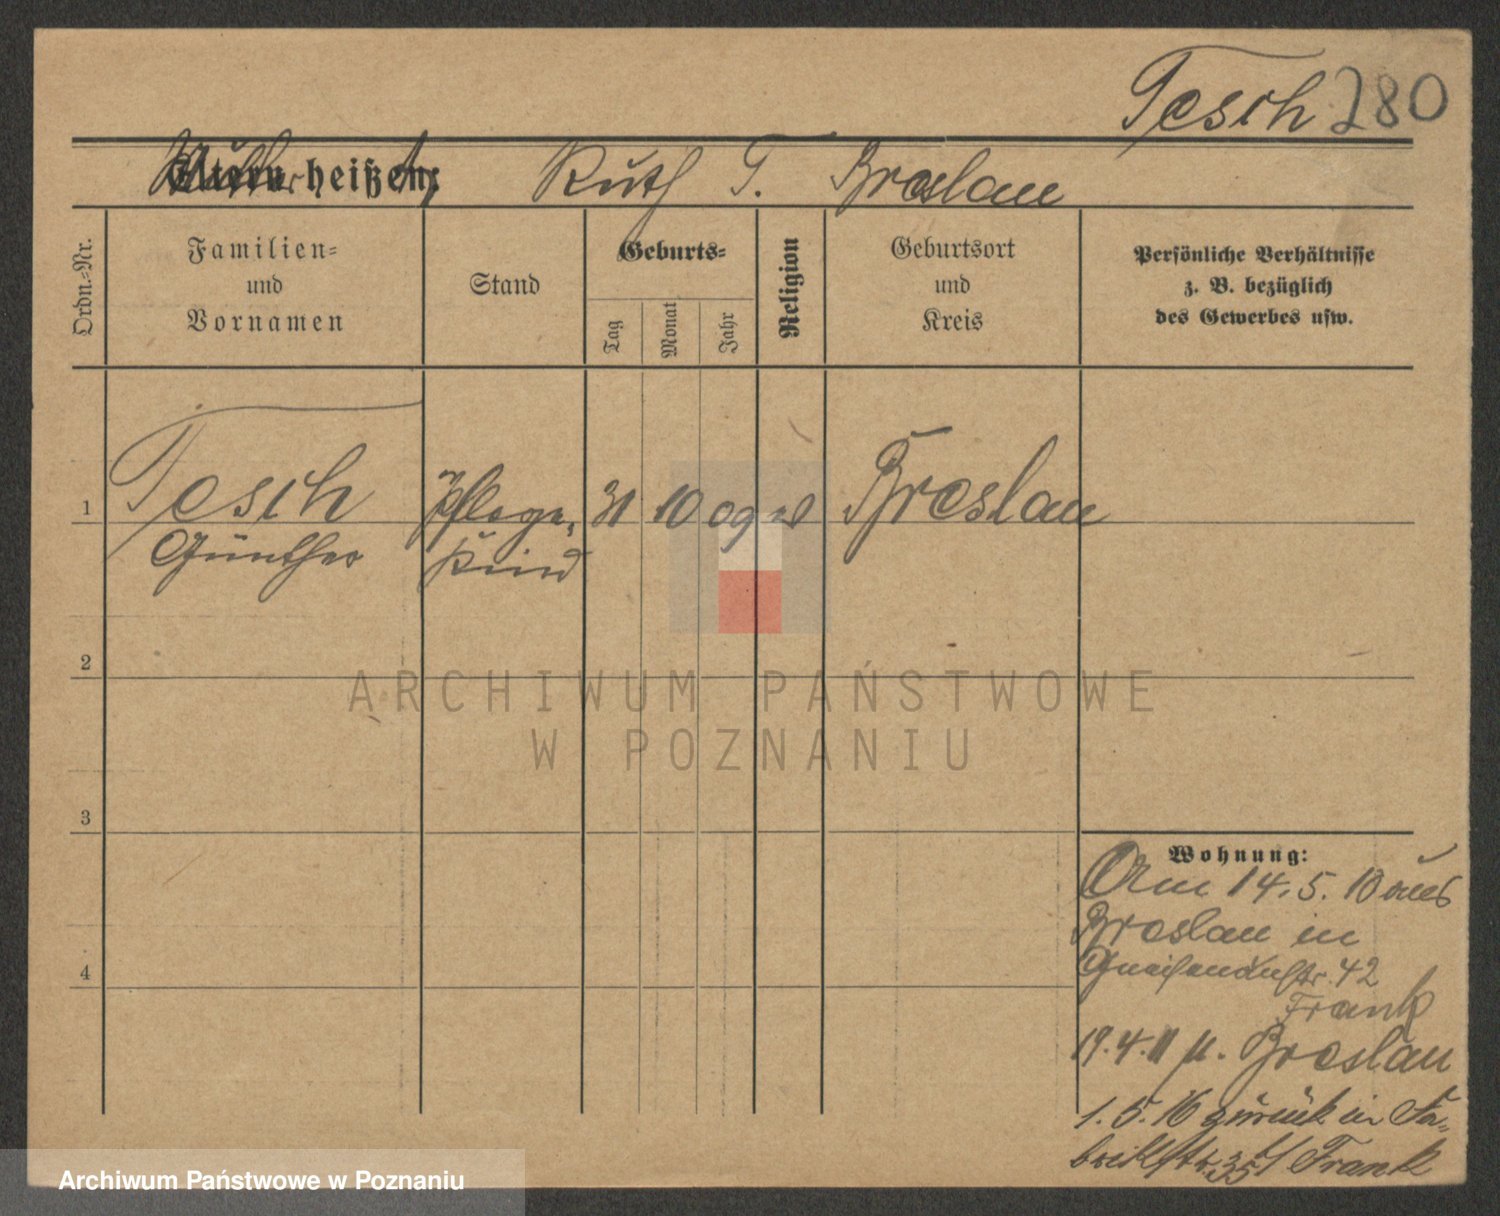 Tesch 280
Eltern heißen: Ruth T. Breslau
Ordn.-Nr.
Familien-
und
Vornamen
Stand
Geburts-
Tag
Monat
Jahr
Religion
Geburtsort
und
Kreis
Persönliche Verhältnisse
z. B. bezüglich
des Gewerbes usw.
1 Tesch Pflege- 31 10 09 Breslau
Günther Kind
2
ARCHIWUM PAŃSTWOWE
W POZNANIU
3
Wohnung:
Am 14.5.10 aus
Breslau in
Gneisenaustr. 42
Frank
19.4.11 n. Breslau
1.5.16 zurück in Fa-
brikstr. 35 b/ Frank
4
Archiwum Państwowe w Poznaniu